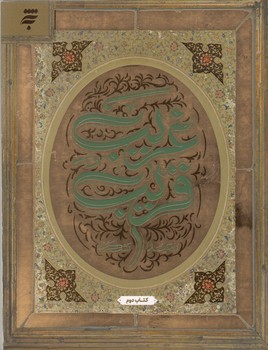 غریب
قریب
کتاب دوم